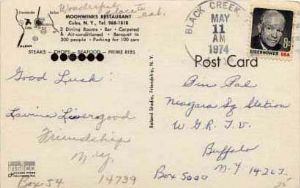 Wonderful
MOONWINKS RESTAURANT
Cuba, N. Y., Tel. 968-1618
2 Dining Rooms • Bar • Carpeted
& Air-conditioned • Banquet to
300 people • Parking for 100 cars
STEAKS - CHOPS - SEAFOOD - PRIME RIBS
Good Luck!
Lavina Livergood
Friendship
N.Y.
Box 54 14739
BLACK CREEK
MAY
11
AM
1974
EISENHOWER USA
Post Card
Pen Pal
Niagara Sq Station
W.G.R. T.V.
Buffalo
N.Y 14202.
Box 5000